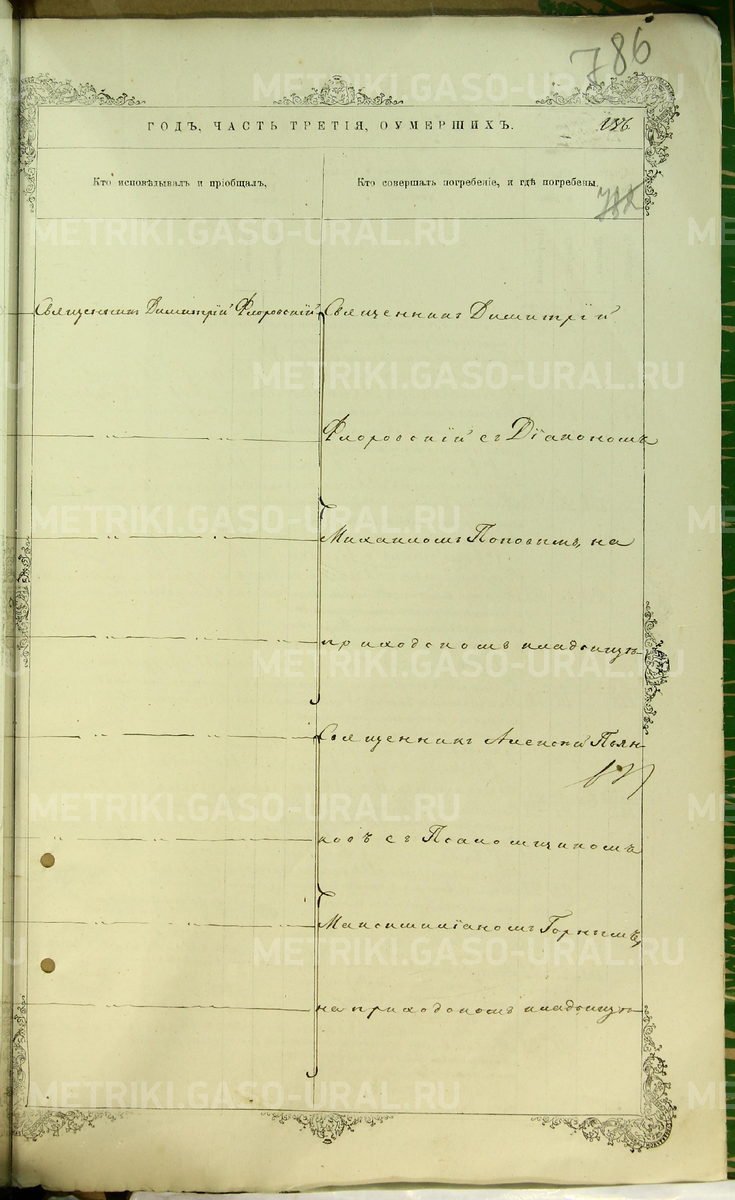 786
ГОДЪ, ЧАСТЬ ТРЕТІЯ, ОУМЕРШИХЪ.
186
Кто исповѣдывалъ и пріобщалъ,
Кто совершалъ погребеніе, и гдѣ погребены.
782
Священникъ Димитрій Флоровскій
Священникъ Димитрій
Флоровскій съ Діакономъ
Михаиломъ Поповымъ, на
приходскомъ кладбищѣ
Священникъ Алексѣй Пьян-
ковъ съ Псаломщикомъ
Максимиліаномъ Горнымъ,
на приходскомъ кладбищѣ
METRIKI.GASO-URAL.RU